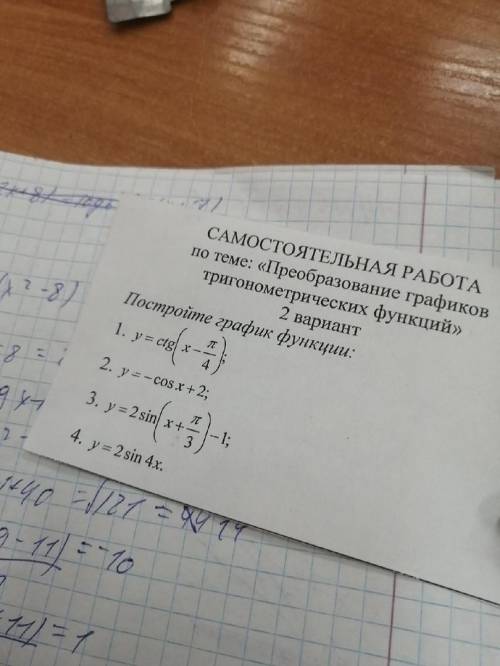 (x² - 8)
САМОСТОЯТЕЛЬНАЯ РАБОТА
по теме: «Преобразование графиков
тригонометрических функций»
2 вариант
Постройте график функции:
1. y = ctg(x − π/4);
2. y = −cos x + 2;
3. y = 2sin(x + π/3) −1;
4. y = 2sin 4x.
+40 = √121 =
- 11) = -10
11) = 1